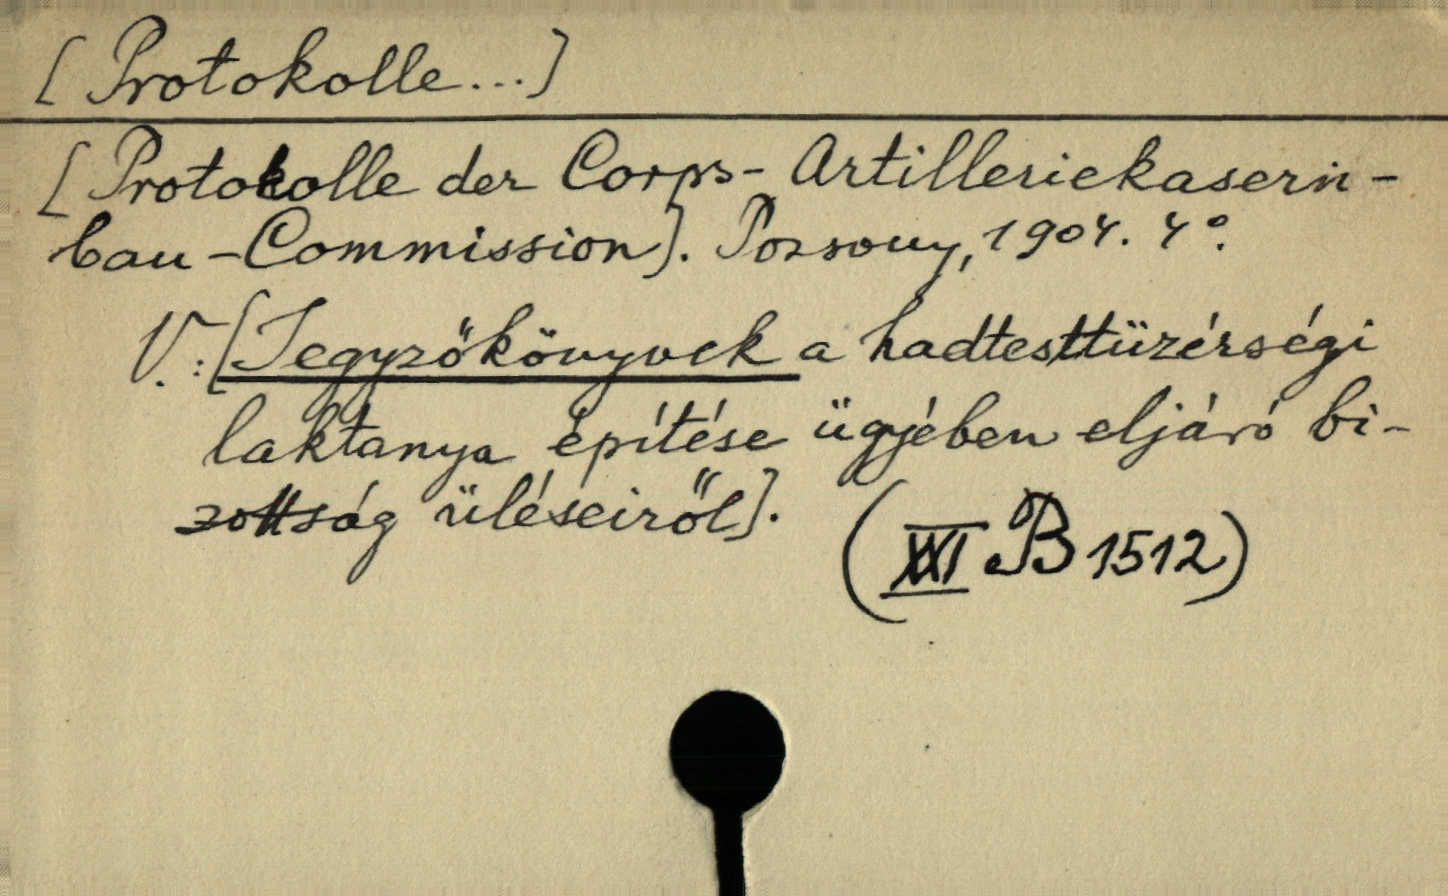 [Protokolle...]
[Protokolle der Corps-Artilleriekasern-
bau-Commission]. Pozsony, 1904. 4°.
V.: [Jegyzőkönyvek a hadtesttüzérségi
laktanya építése ügyében eljáró bi-
zottság üléseiről].
(XXI B 1512)